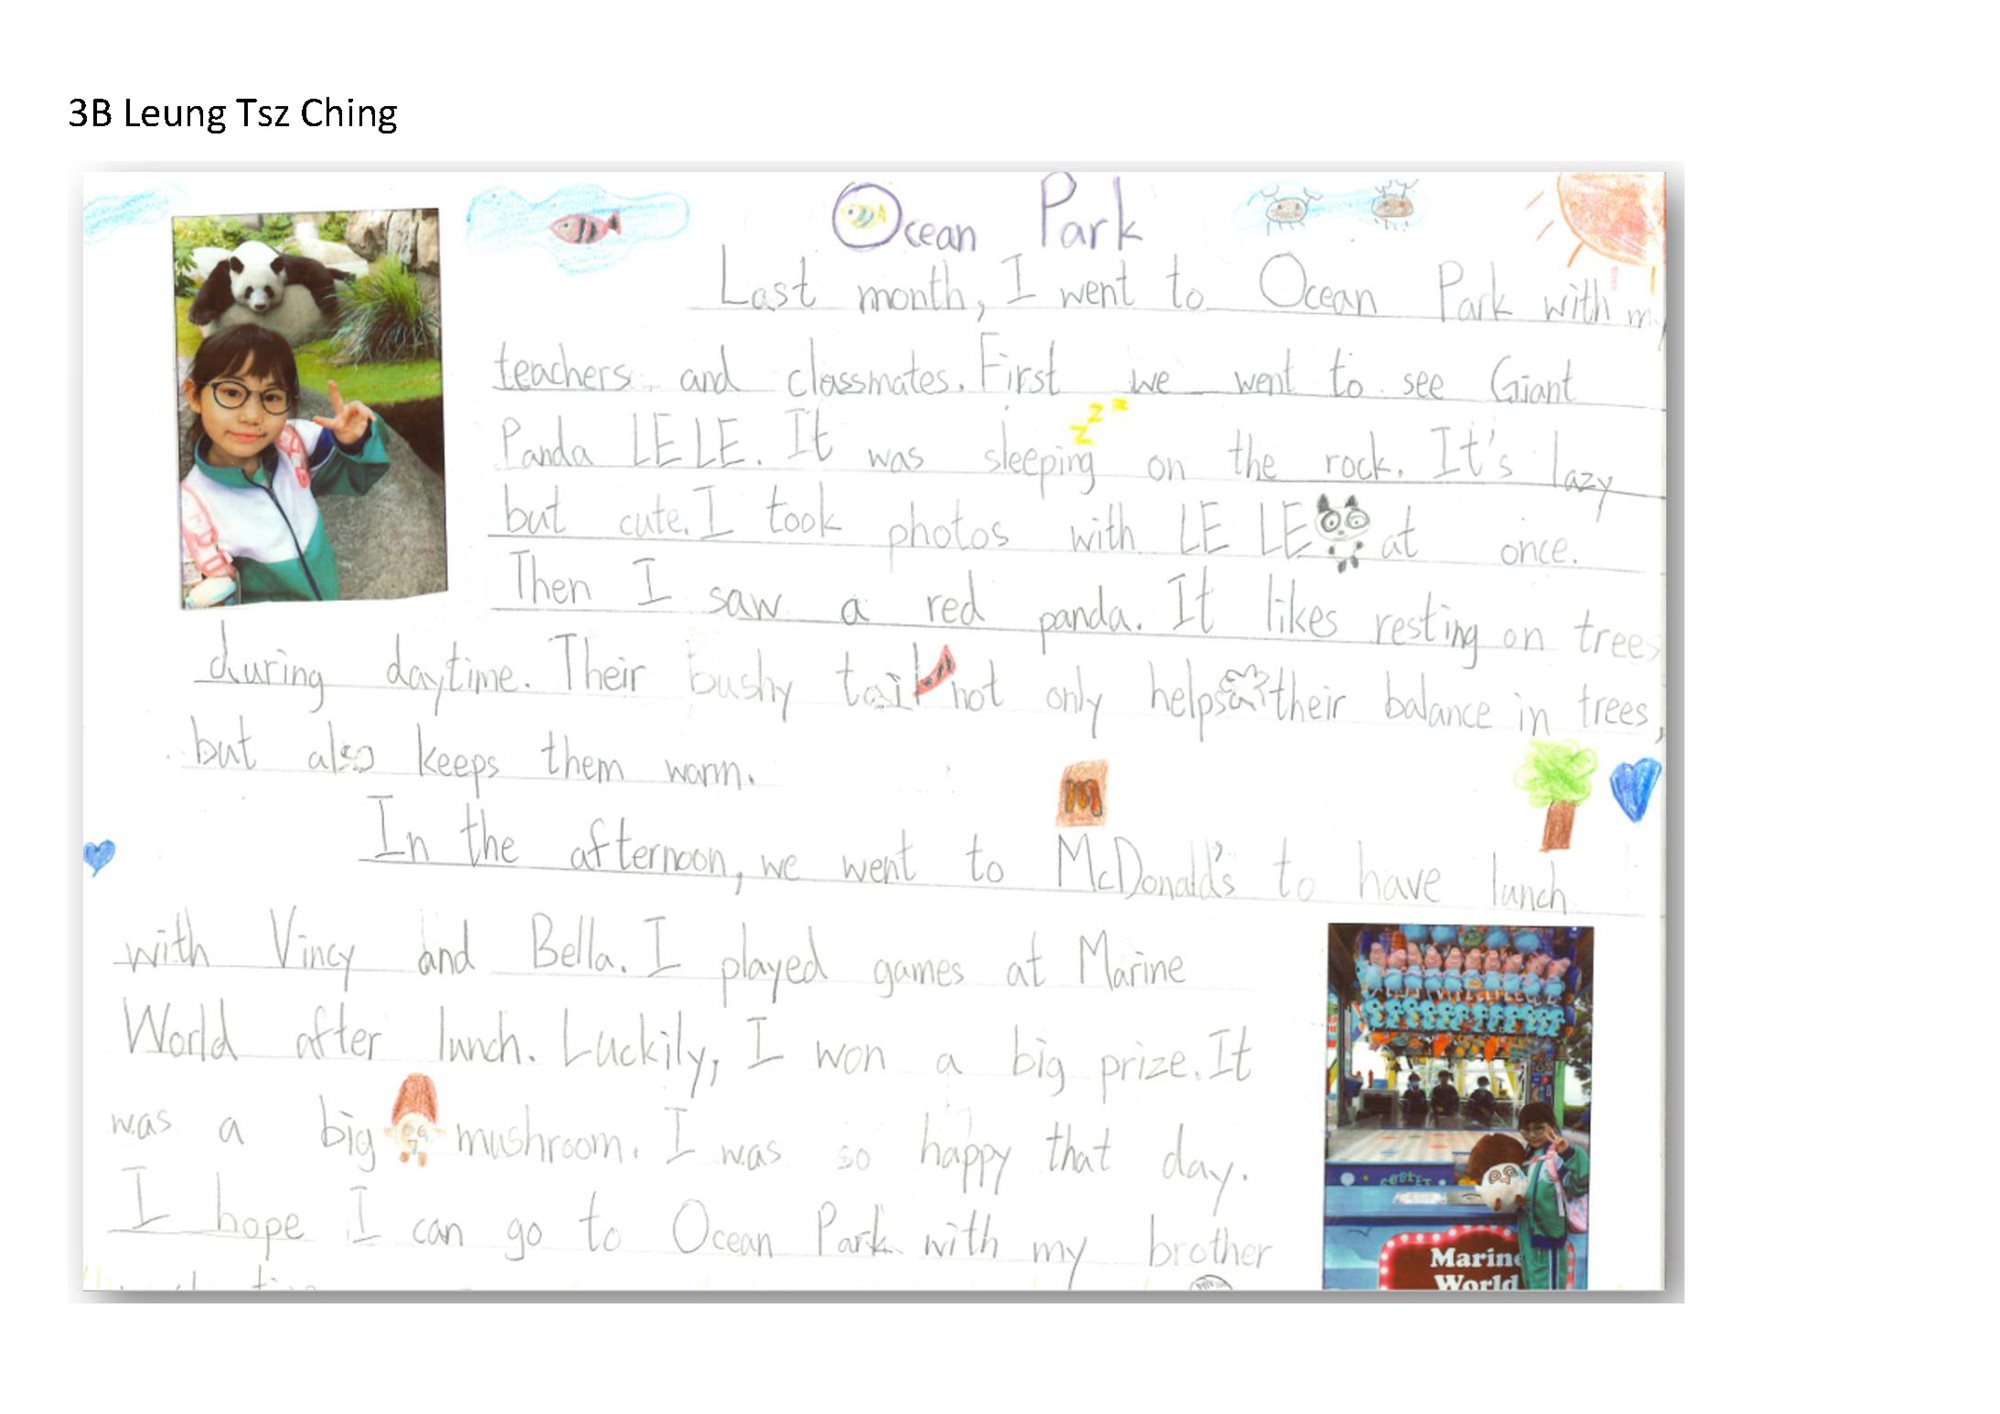 3B Leung Tsz Ching
Ocean Park
Last month, I went to Ocean Park with my
teachers and classmates. First we went to see Giant
Panda LE LE. It was sleeping on the rock. It's lazy
zzz
but cute. I took photos with LE LE at once.
Then I saw a red panda. It likes resting on trees
during daytime. Their bushy tail not only helps their balance in trees,
but also keeps them warm.
M
In the afternoon, we went to McDonald's to have lunch
with Vincy and Bella. I played games at Marine
World after lunch. Luckily, I won a big prize. It
was a big mushroom. I was so happy that day.
I hope I can go to Ocean Park with my brother
Marine
World